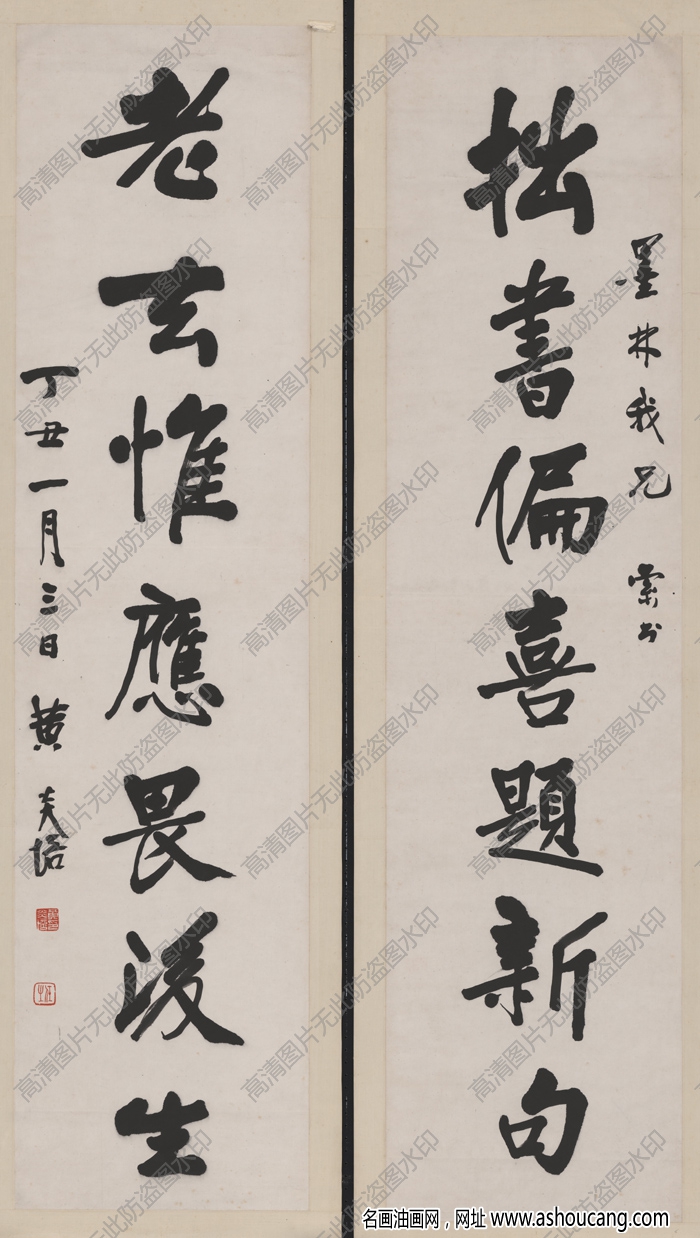 墨林我兄 索书
拙書偏喜題新句
老去惟應畏後生
丁丑一月三日 黄炎培
任之
高清图片无此防盗图水印
名画油画网，网址 www.ashoucang.com